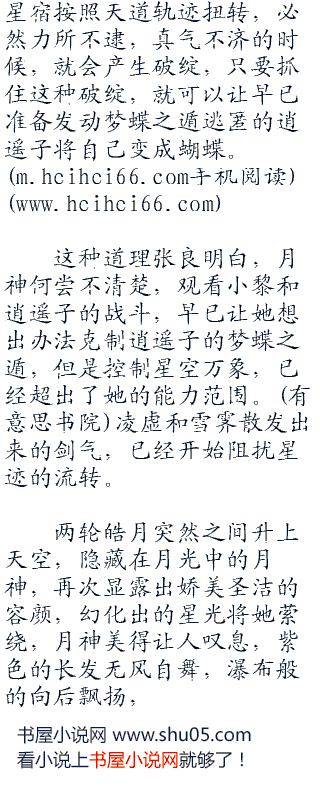 星宿按照天道轨迹扭转，必
然力所不逮，真气不济的时
候，就会产生破绽，只要抓
住这种破绽，就可以让早已
准备发动梦蝶之遁逃匿的逍
遥子将自己变成蝴蝶。
(m.hcihci66.com手机阅读)
(www.hcihci66.com)
这种道理张良明白，月
神何尝不清楚，观看小黎和
逍遥子的战斗，早已让她想
出办法克制逍遥子的梦蝶之
遁，但是控制星空万象，已
经超出了她的能力范围。(有
意思书院)凌虚和雪霁散发出
来的剑气，已经开始阻扰星
迹的流转。
两轮皓月突然之间升上
天空，隐藏在月光中的月
神，再次显露出娇美圣洁的
容颜，幻化出的星光将她萦
绕，月神美得让人叹息，紫
色的长发无风自舞，瀑布般
的向后飘扬，
书屋小说网 www.shu05.com
看小说上书屋小说网就够了！